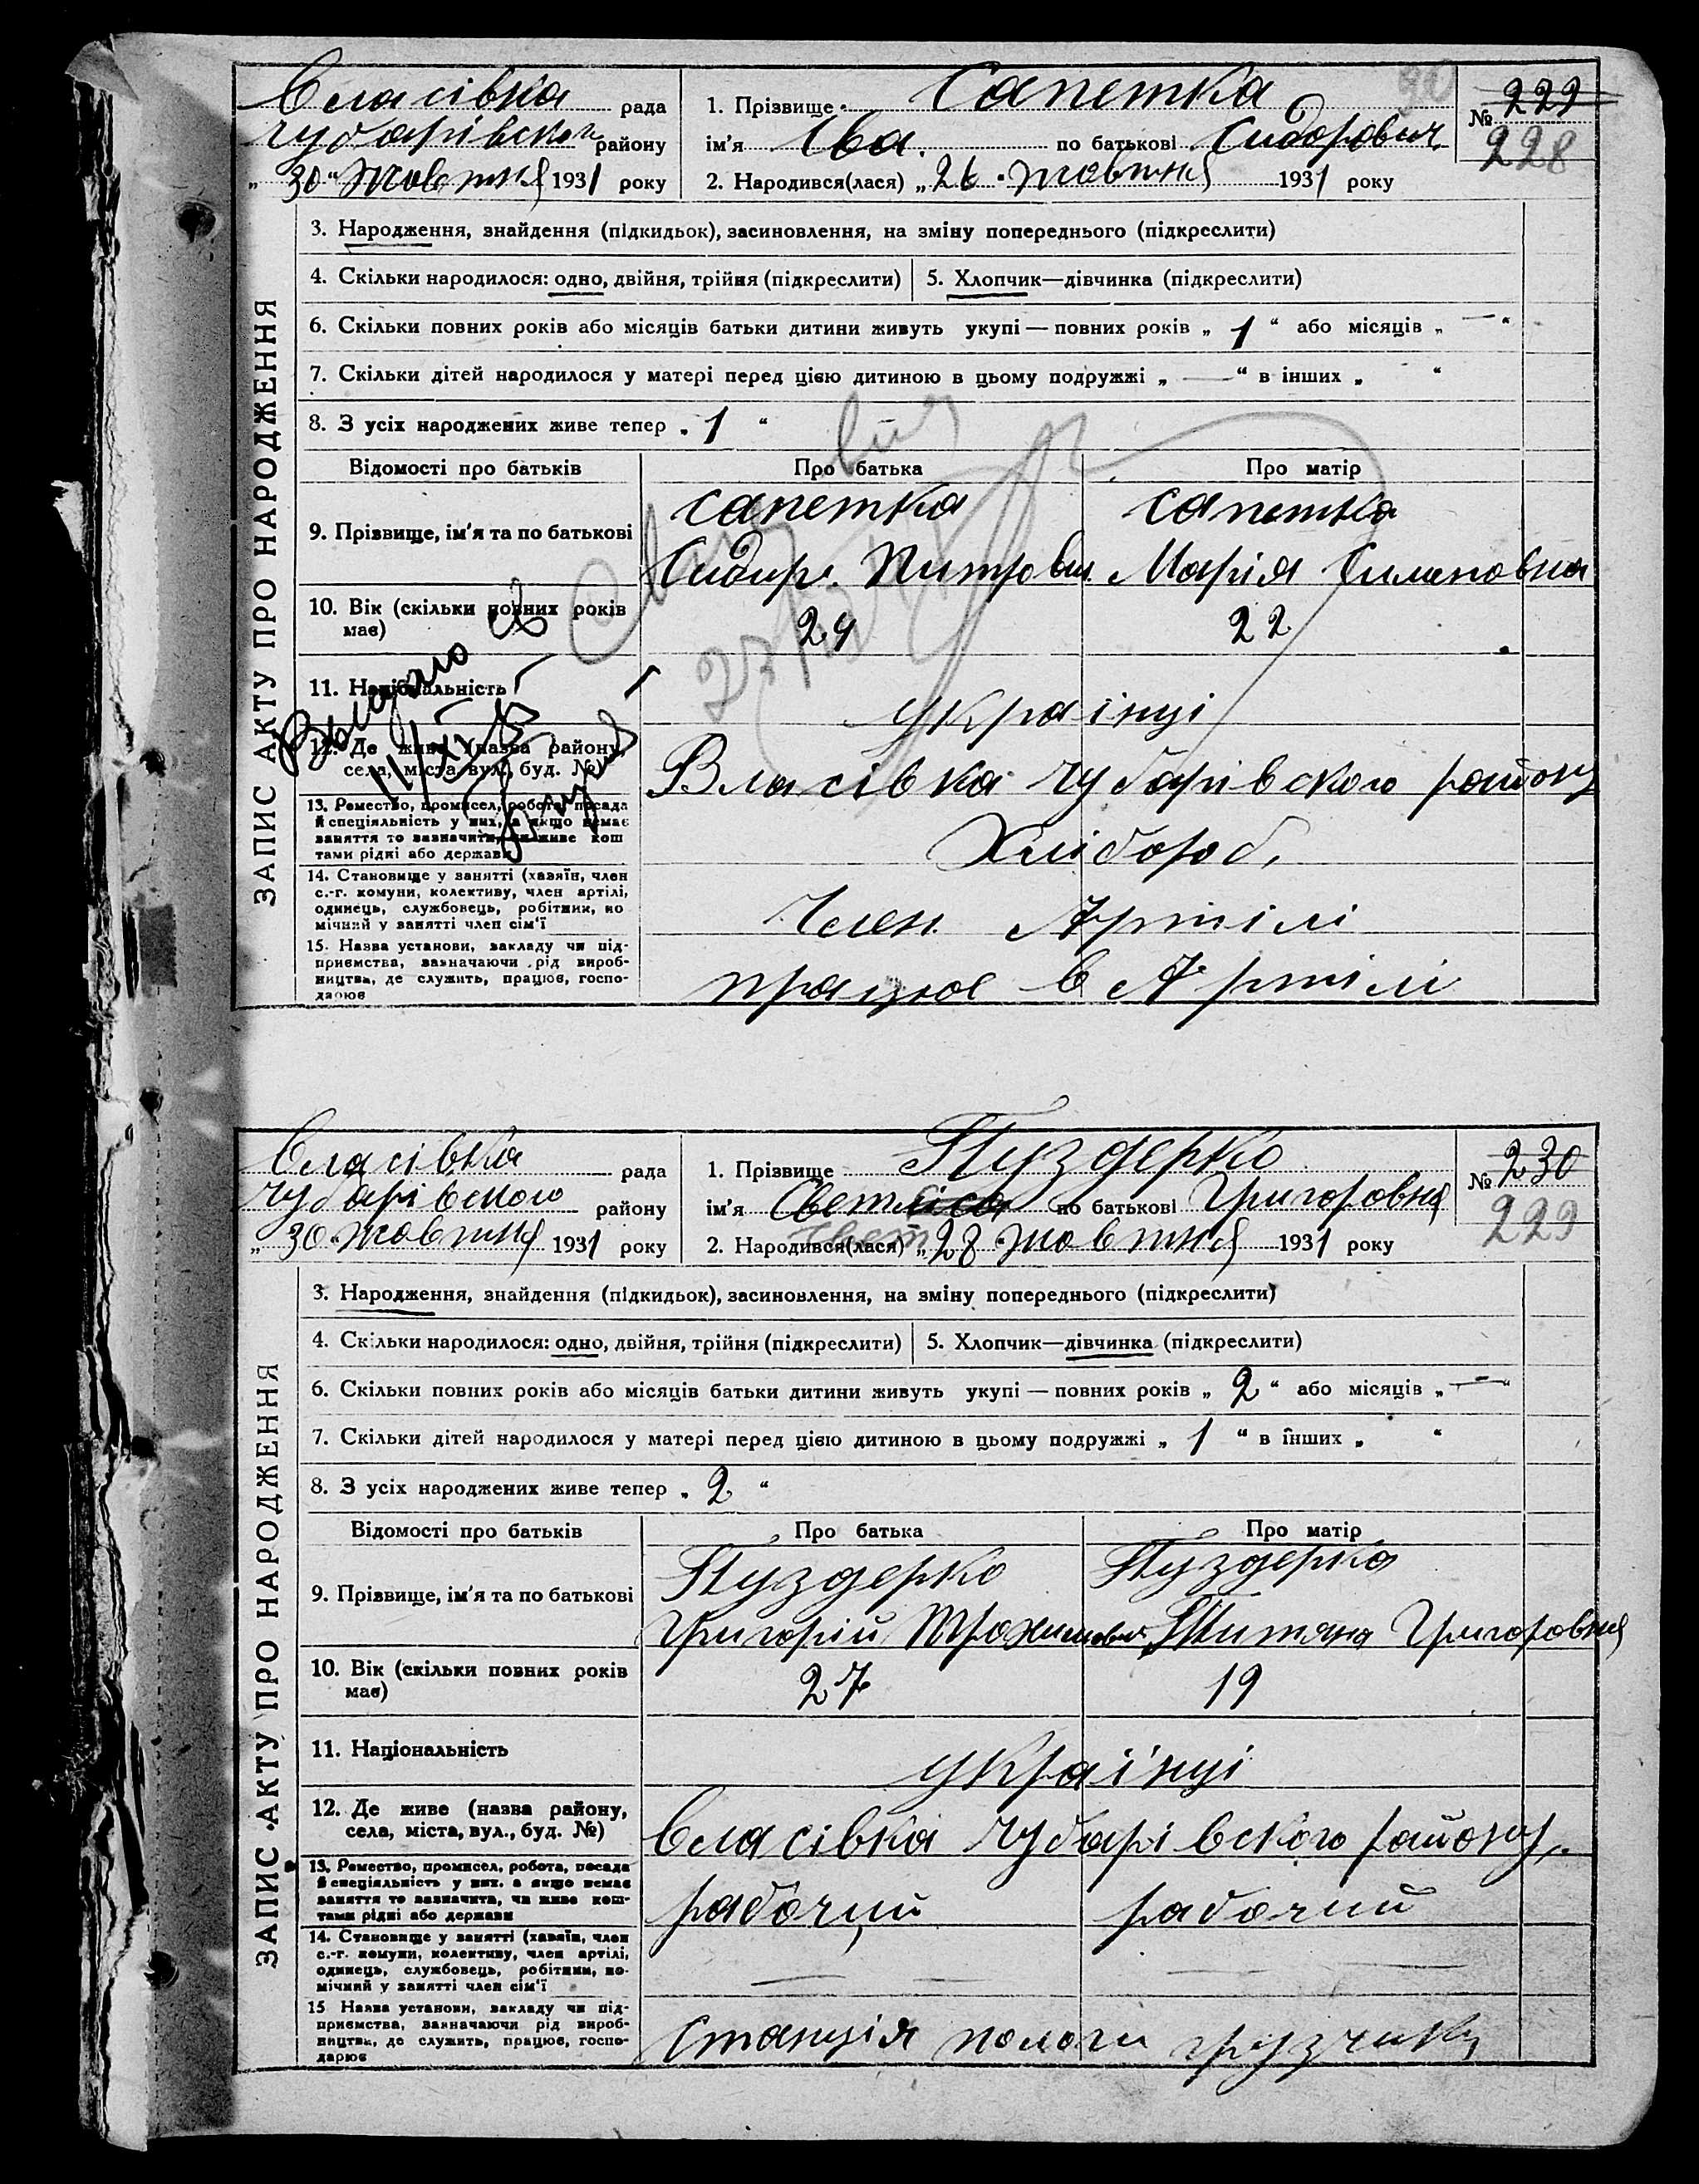 Власівка рада
Чубарівськ району
„ 30 “ жовтня 1931 року
1. Прізвище Сапетка
ім'я Іва. по батькові Сидорович
2. Народився(лася) „ 26 “ жовтня 1931 року
90
№ 229
228
ЗАПИС АКТУ ПРО НАРОДЖЕННЯ
3. Народження, знайдення (підкидьок), засиновлення, на зміну попереднього (підкреслити)
4. Скільки народилося: одно, двійня, трійня (підкреслити) 5. Хлопчик—дівчинка (підкреслити)
6. Скільки повних років або місяців батьки дитини живуть укупі — повних років „ 1 “ або місяців „ — “
7. Скільки дітей народилося у матері перед цією дитиною в цьому подружжі „ — “ в інших „ “
8. З усіх народжених живе тепер „ 1 “
Відомості про батьків Про батька Про матір
9. Прізвище, ім'я та по батькові
Сапетка Сапетка
Сидир. Питрович Марія Симоновна
10. Вік (скільки повних років
має)
24 22
11. Національність
українці
12. Де живе (назва району,
села, міста, вул., буд. №)
Власівка Чубарівского району
13. Ремество, промисел, робота, посада
й спеціяльність у них, а якщо немає
заняття то зазначити, чи живе кош
тами рідні або держави
Хлібороб.
14. Становище у занятті (хазяїн, член
с.-г. комуни, колективу, член артілі,
одинець, службовець, робітник, по
мічний у занятті член сім'ї
Член Артілі
15. Назва установи, закладу чи під-
приємства, зазначаючи рід вироб-
ництва, де служить, працює, госпо-
дарює
працює в Артілі
Выдано
Власівка рада
Чубарівского району
„ 30 “ жовтня 1931 року
1. Прізвище Пуздерко
ім'я по батькові Григоровня
2. Народився(лася) „ 28 “ жовтня 1931 року
№ 230
229
ЗАПИС АКТУ ПРО НАРОДЖЕННЯ
3. Народження, знайдення (підкидьок), засиновлення, на зміну попереднього (підкреслити)
4. Скільки народилося: одно, двійня, трійня (підкреслити) 5. Хлопчик—дівчинка (підкреслити)
6. Скільки повних років або місяців батьки дитини живуть укупі — повних років „ 2 “ або місяців „ — “
7. Скільки дітей народилося у матері перед цією дитиною в цьому подружжі „ 1 “ в інших „ “
8. З усіх народжених живе тепер „ 2 “
Відомості про батьків Про батька Про матір
9. Прізвище, ім'я та по батькові
Пуздерко Пуздерка
Григорій Трохимович Титяна Григоровня
10. Вік (скільки повних років
має)
27 19
11. Національність
українці
12. Де живе (назва району,
села, міста, вул., буд. №)
Власівка Чубарівского району
13. Ремество, промисел, робота, посада
й спеціяльність у них, а якщо немає
заняття то зазначити, чи живе кош-
тами рідні або держави
рабочий рабочий
14. Становище у занятті (хазяїн, член
с.-г. комуни, колективу, член артілі,
одинець, службовець, робітник, по-
мічний у занятті член сім'ї
15 Назва установи, закладу чи під-
приємства, зазначаючи рід вироб-
ництва, де служить, працює, госпо-
дарює
Станція пологи грузчику